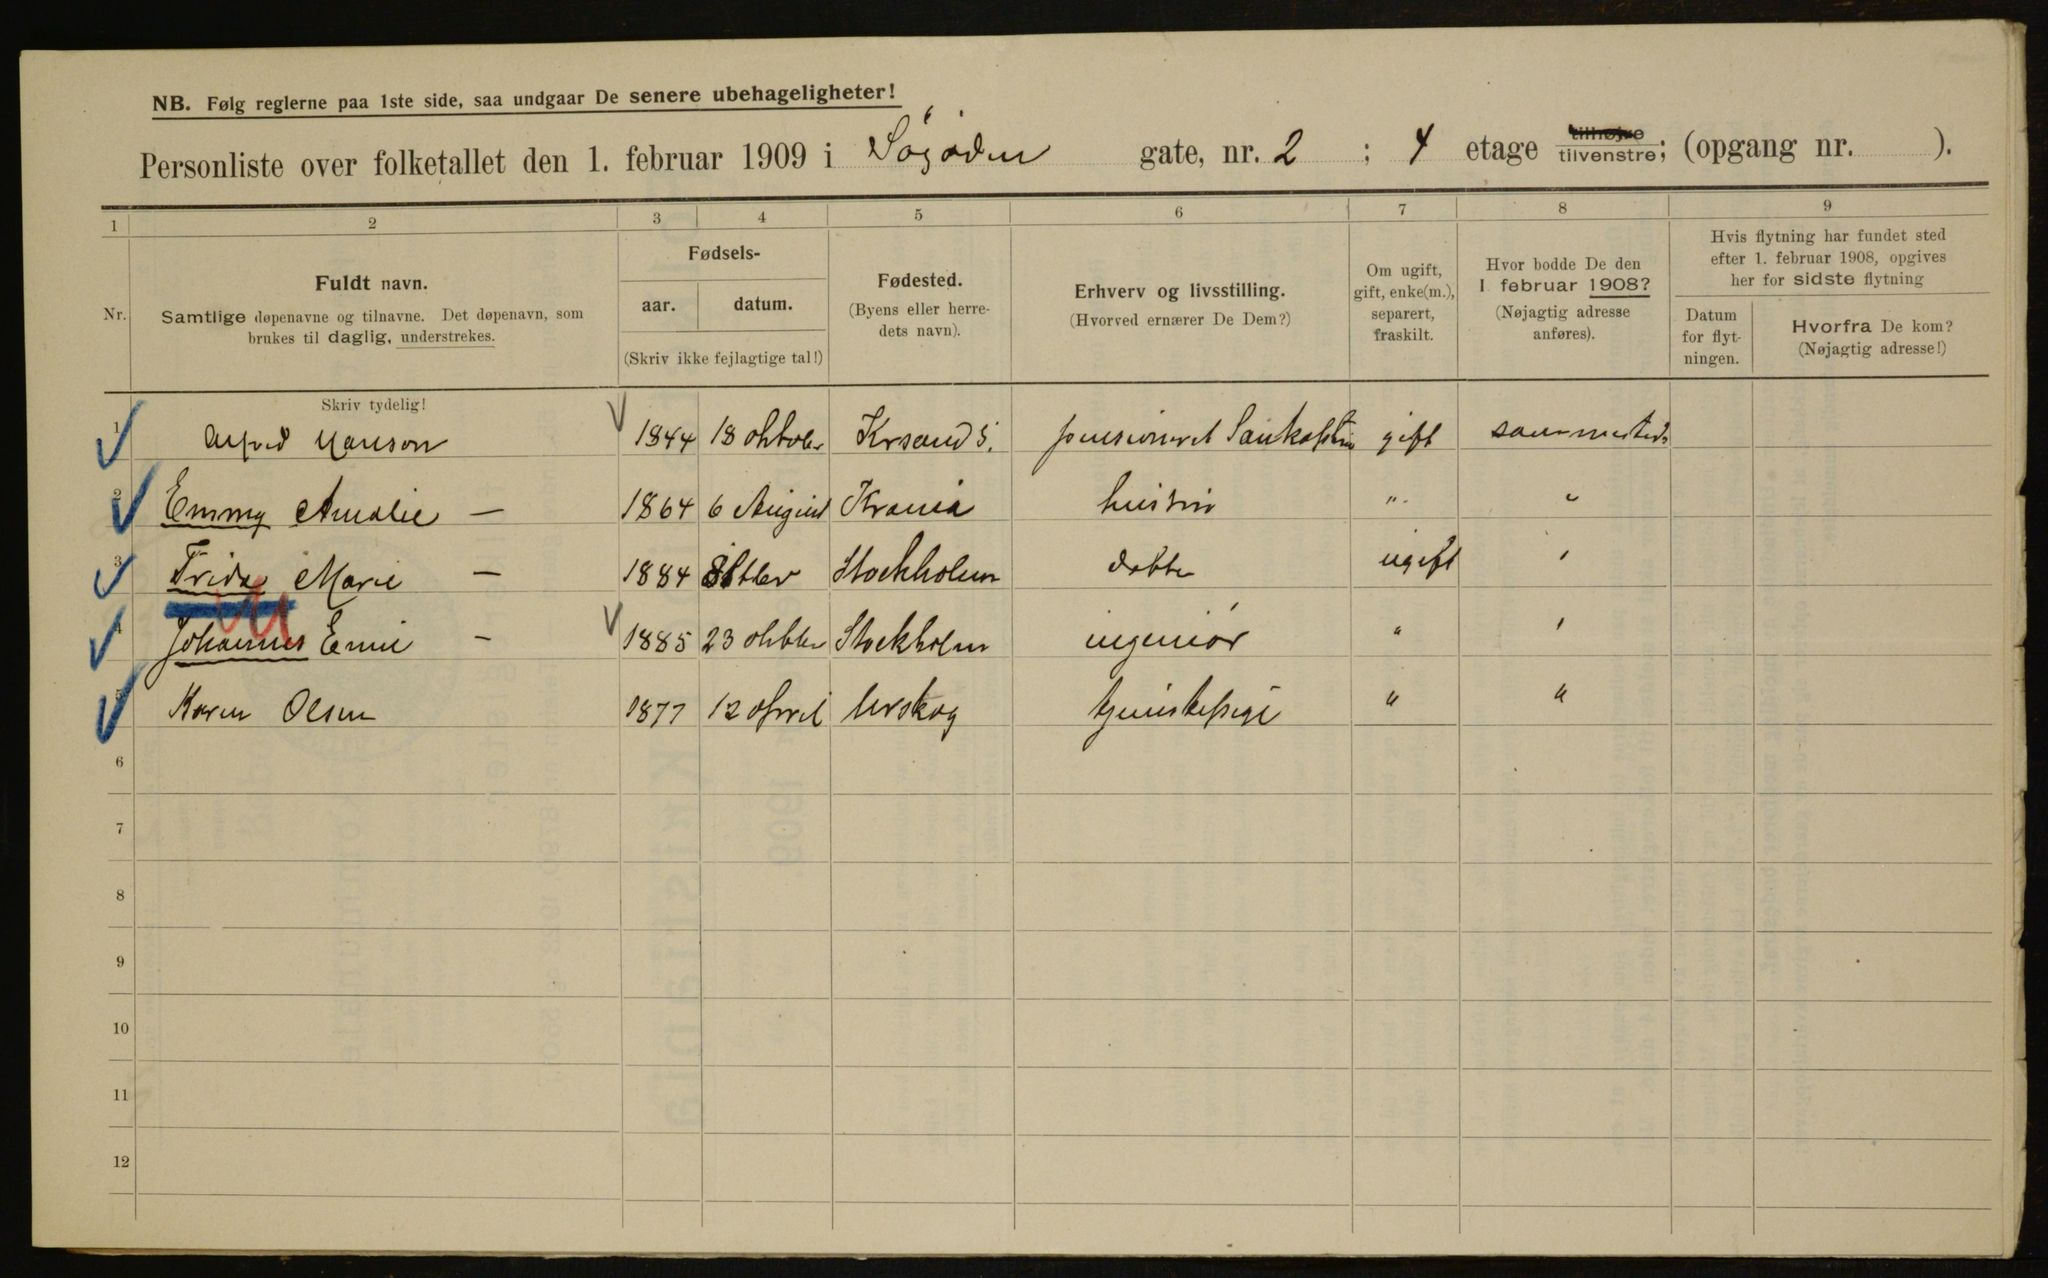 NB. Følg reglerne paa 1ste side, saa undgaar De senere ubehageligheter!
Personliste over folketallet den 1. februar 1909 i gate, nr. 2 ; 4 etage tilhøjre tilvenstre; (opgang nr. ).
1 2 3 4 5 6 7 8 9
Nr.
Fuldt navn.
Samtlige døpenavne og tilnavne. Det døpenavn, som
brukes til daglig, understrekes.
Fødsels-
aar. datum.
(Skriv ikke fejlagtige tal!)
Fødested.
(Byens eller herre-
dets navn).
Erhverv og livsstilling.
(Hvorved ernærer De Dem?)
Om ugift,
gift, enke(m.),
separert,
fraskilt.
Hvor bodde De den
1. februar 1908?
(Nøjagtig adresse
anføres).
Hvis flytning har fundet sted
efter 1. februar 1908, opgives
her for sidste flytning
Datum
for flyt-
ningen.
Hvorfra De kom?
(Nøjagtig adresse!)
Skriv tydelig!
1 Alfred Hanson 1844 18 oktober Krsand S. pensioneret gift sammesteds
2 Emmy Amalie — 1864 6 August Krania hustru " "
3 Frida Marie — 1884 Stockholm datter ugift "
4 Johannes Emil — 1885 23 oktber Stockholm ingeniør " "
5 Karen Olsen 1877 12 april Urskog tjenestepige " "
6
7
8
9
10
11
12